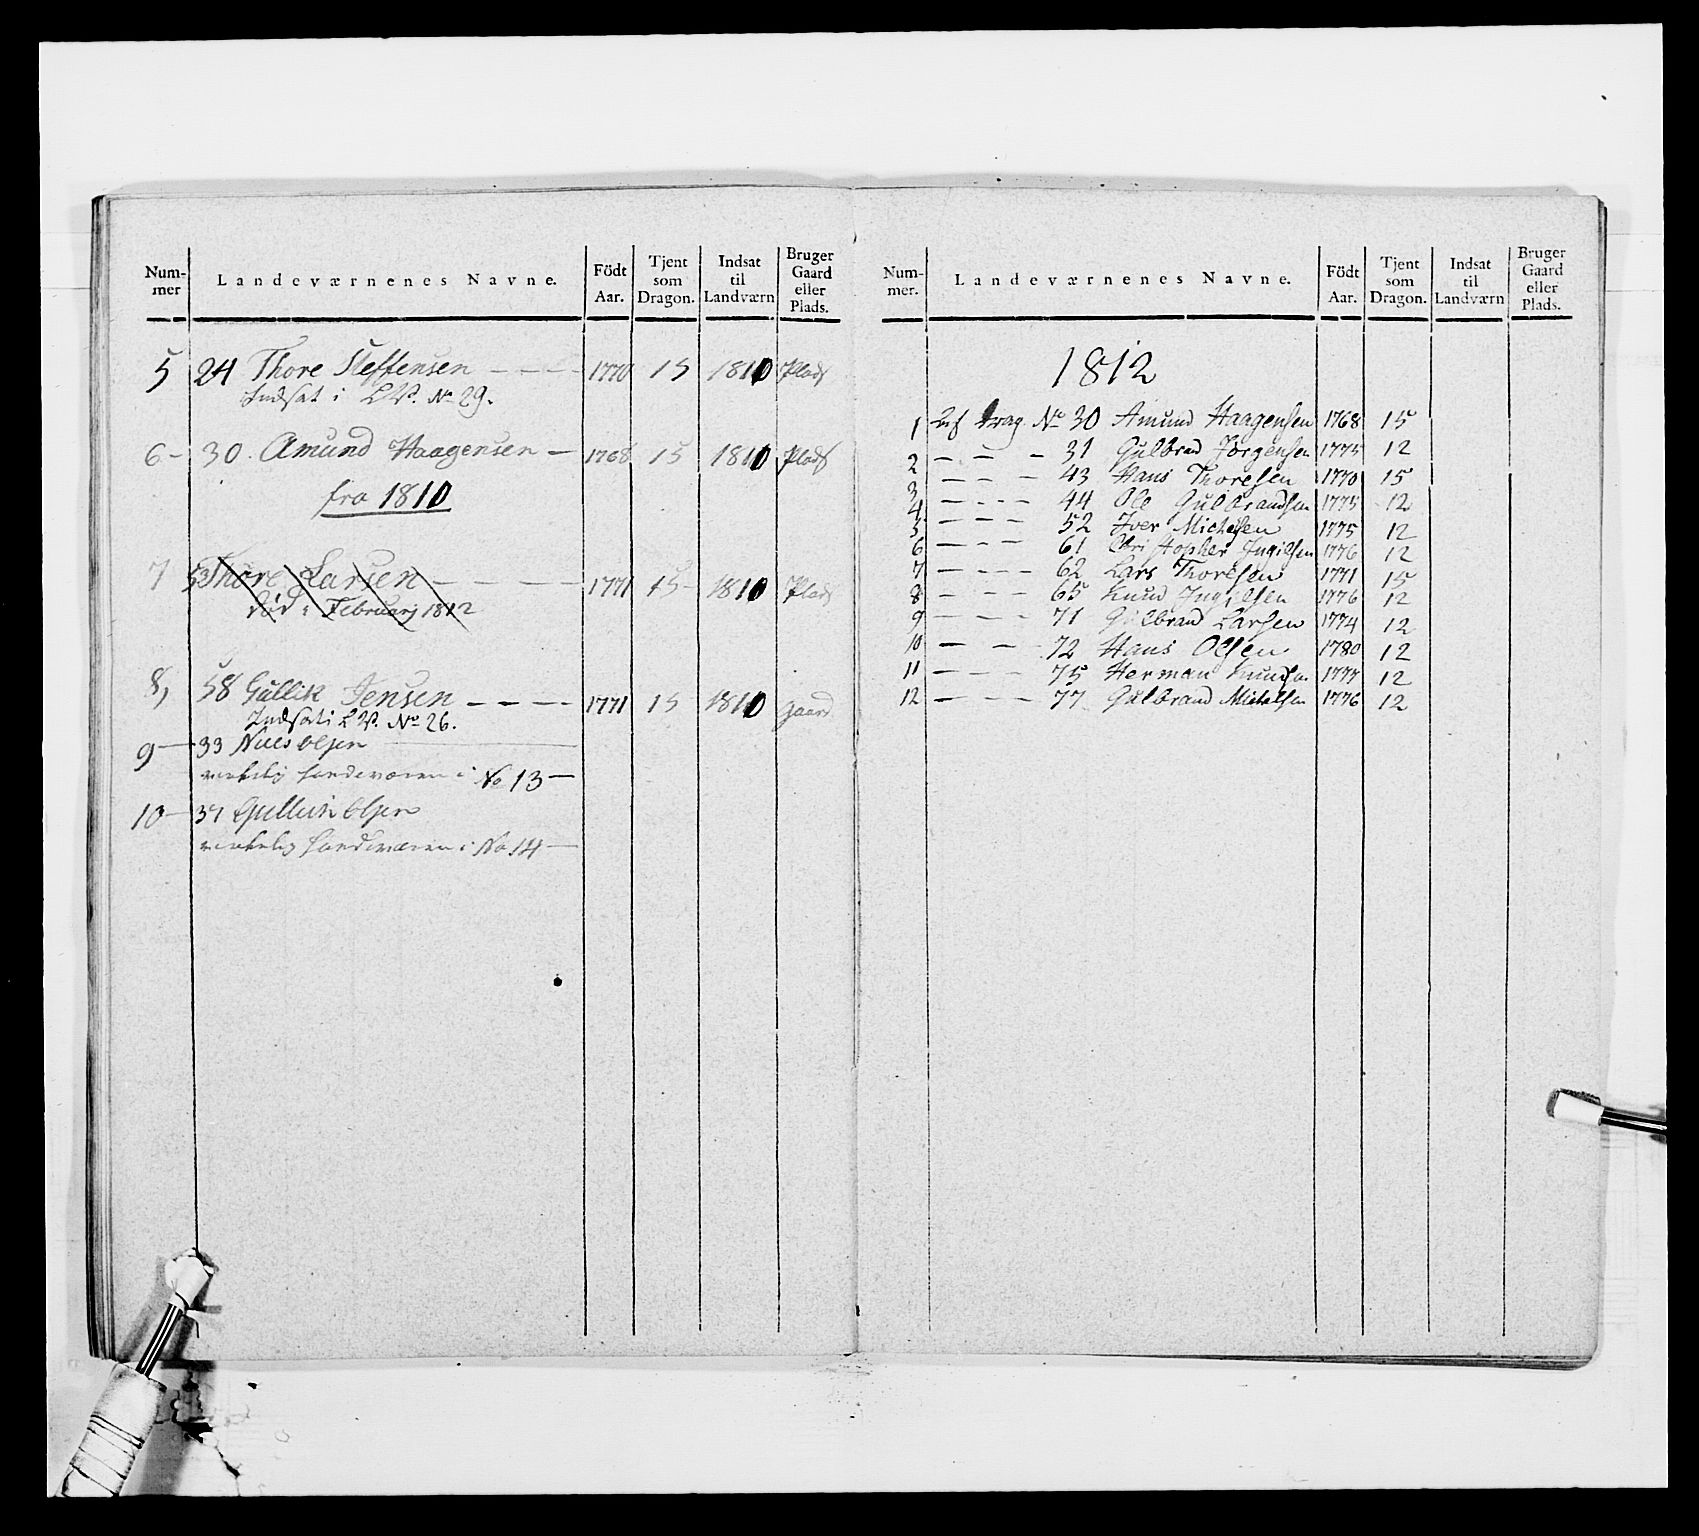 Num-
mer
Landeværnenes Navne.
Födt
Aar.
Tjent
som
Dragon.
Indsat
til
Landværn
Bruger
Gaard
eller
Plads.
5 24 Thore Steffensen - - - - 1770 15 1810 Plads
Indsat i L V. No 29.
6 - 30. Amund Haagensen - 1768 15 1810 Plads
fra 1810
7 53 Thore Larsen - - - - 1771 15 - 1810 Plads
död i Februarj 1812
8, 58 Gullik Jensen - - - - 1771 15 1810 gaard
Indsat i L V. No 26.
9 - 33 Niels Olsen
virkelig Landeværn i No 13 -
10 - 37 Olsen
virkelig Landeværn i No 14 -
Num-
mer.
Landeværnenes Navne.
Födt
Aar.
Tjent
som
Dragon.
Indsat
til
Landværn
Bruger
Gaard
eller
Plads.
1812
1 Drag No 30 Amund Haagensen 1768 15
2 - - - 31 Gulbrand Jörgensen 1775 12
3 - - - 43 Hans Thoresen 1770 15
4 - - - 44 Ole Gulbrandsen 1775 12
5 - - - 52 Iver Michelsen 1775 12
6 - - - 61 Christopher Ingilsen 1776 12
7 - - - 62 Lars Thoresen 1771 15
8 - - - 65 Knud Ingilsen 1776 12
9 - - - 71 Gulbrand Larsen 1774 12
10 - - - 72 Hans Olsen 1780 12
11 - - - 75 Herman Knudsen 1777 12
12 - - - 77 Gulbrand Michelsen 1776 12